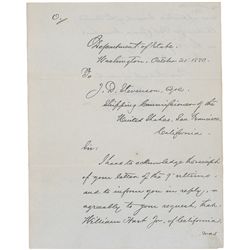 Department of State.
Washington, October 21, 1872.
To
J. D. Stevenson, Esq.
Shipping Commissioner of the
United States, San Francisco,
California.
Sir:
I have to acknowledge the receipt
of your letter of the 9th ultimo,
and to inform you in reply,
agreeably to your request that
William Hart Jr. of California
was